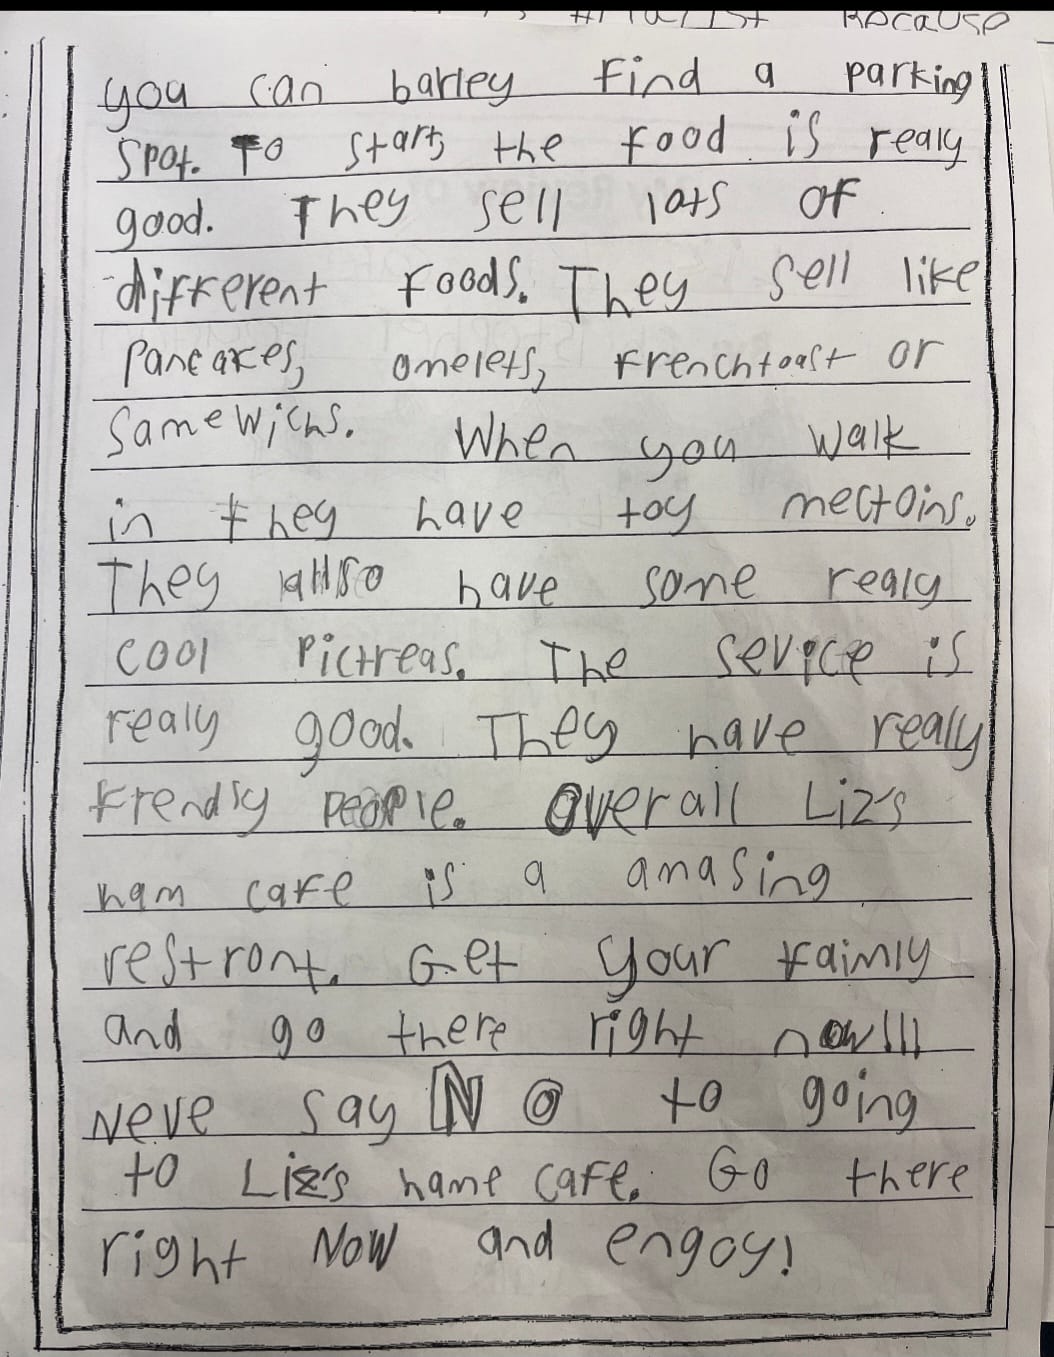 Because
you can barley find a parking
spot. To start, the food is realy
good. They sell lots of
different foods. They sell like
Pancakes, omelets, frenchtoast or
samewichs. When you walk
in they have toy mectoins.
They allso have some realy
cool Pictreas. The sevice is
realy good. They have really
frendly people. Overall Liz's
ham cafe is a amasing
restront. Get your faimly
and go there right now!!!
Neve say NO to going
to Liz's hame cafe. Go there
right Now and engoy!